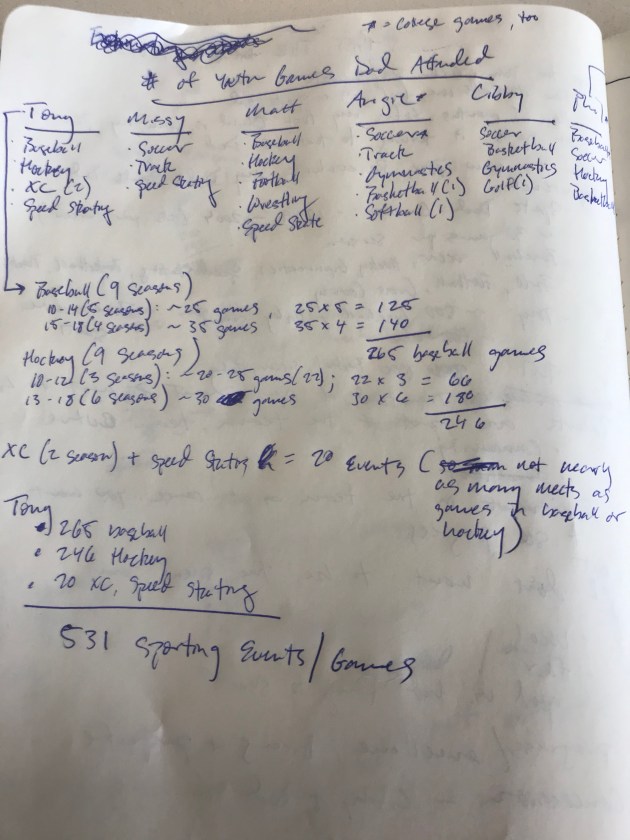 * = college games, too
# of Youth Games Dad Attended
Tony Missy Matt Angie * Libby Phil
· Baseball · Soccer · Baseball · Soccer · Soccer Baseball
· Hockey · Track · Hockey · Track · Basketball Soccer
· XC (2) · Speed Skating · Football · Gymnastics · Gymnastics Hockey
· Speed Skating · Wrestling · Basketball (1) · Golf (1) Basketball
· Speed Skate · Softball (1)
Baseball (9 seasons)
10-14 (5 seasons): ~25 games, 25 x 5 = 125
15-18 (4 seasons) ~ 35 games 35 x 4 = 140
265 baseball games
Hockey (9 seasons)
10-12 (3 seasons): ~20-25 games (22); 22 x 3 = 66
13-18 (6 seasons) ~30 games 30 x 6 = 180
246
XC (2 season) + speed skating = 20 Events ( not nearly
as many meets as
games in baseball or
hockey)
Tony
· 265 baseball
· 246 Hockey
· 20 XC, Speed Skating
531 Sporting Events/Games